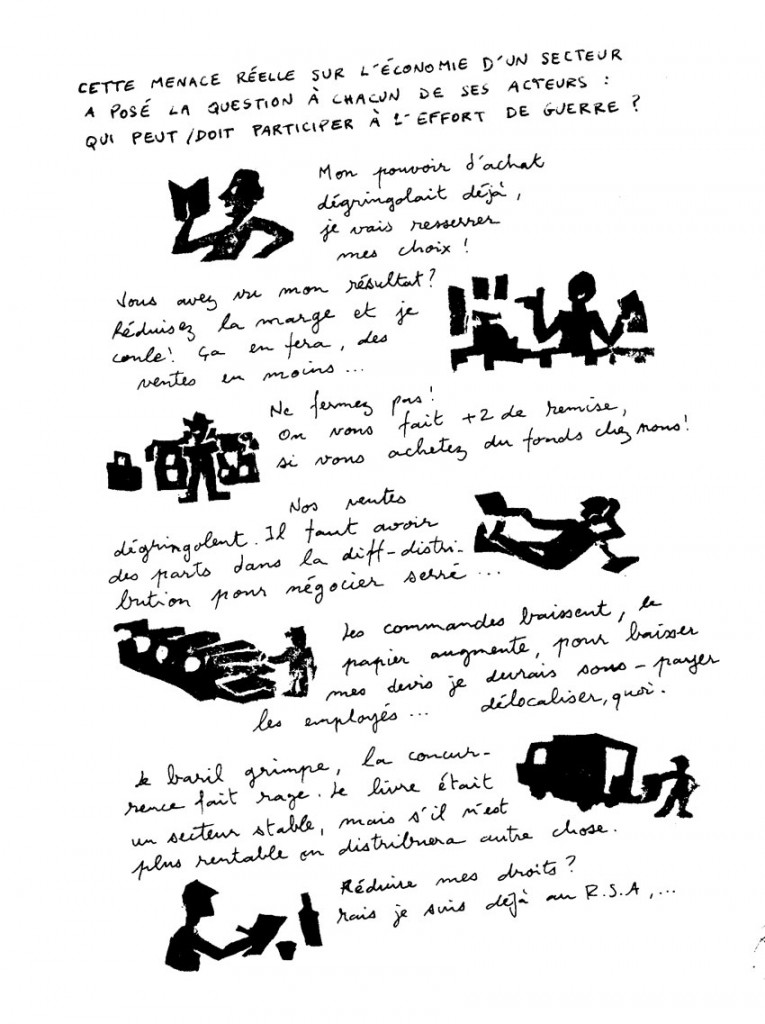 CETTE MENACE RÉELLE SUR L'ÉCONOMIE D'UN SECTEUR
A POSÉ LA QUESTION À CHACUN DE SES ACTEURS :
QUI PEUT/DOIT PARTICIPER À L'EFFORT DE GUERRE ?
Mon pouvoir d'achat
dégringolait déjà,
je vais resserrer
mes choix !
Vous avez vu mon résultat ?
Réduisez la marge et je
coule ! Ça en fera, des
ventes en moins...
Ne fermez pas !
On vous fait +2 de remise,
si vous achetez du fonds chez nous !
Nos ventes
dégringolent. Il faut avoir
des parts dans la diff-distri-
bution pour négocier serré...
Les commandes baissent, le
papier augmente, pour baisser
mes devis je devrais sous-payer
les employés... délocaliser, quoi.
Le baril grimpe, la concur-
rence fait rage. Le livre était
un secteur stable, mais s'il n'est
plus rentable on distribuera autre chose.
Réduire mes droits ?
rais je suis déjà au R.S.A,...